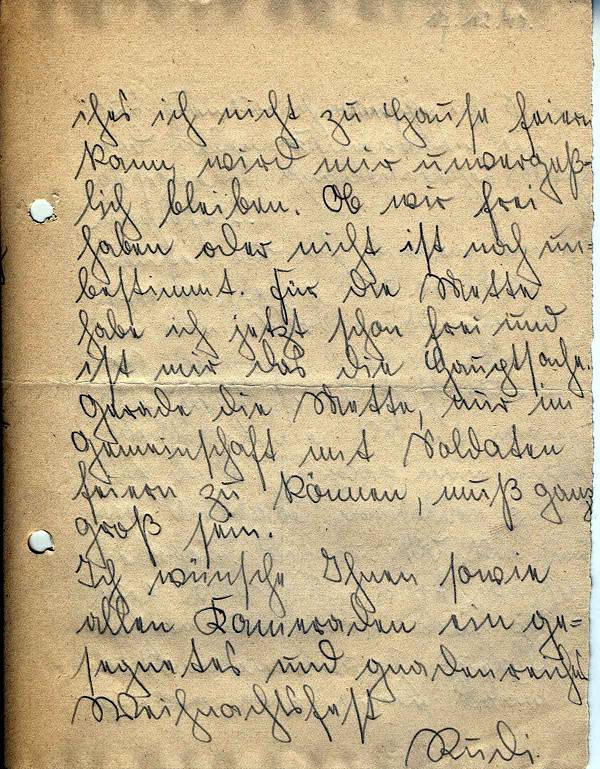 ches ich nicht zu Hause feiern
kann, wird mir unvergeß-
lich bleiben. Ob wir frei
haben oder nicht ist noch un=
bestimmt. Für die Mette
habe ich jetzt schon frei und
ist mir das die Hauptsache.
Gerade die Mette, nur in
Gemeinschaft mit Soldaten
feiern zu können, muß ganz
groß sein.
Ich wünsche Ihnen sowie
allen Kameraden ein ge=
segnetes und gnadenreiches
Weihnachtsfest
Rudi.